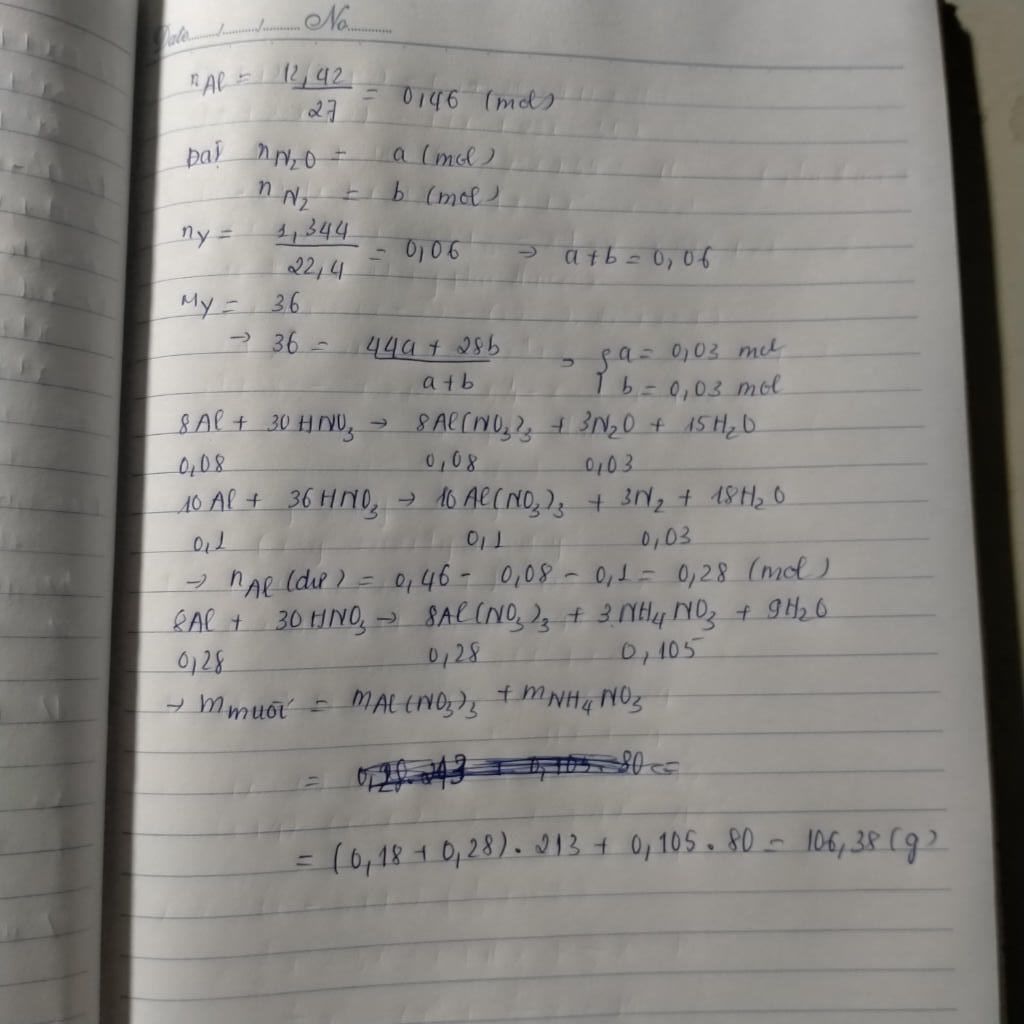 Date....../........../............ No...............
nAl = 12,42/27 = 0,46 (mol)
Đặt nN2O = a (mol)
nN2 = b (mol)
nY = 1,344/22,4 = 0,06 → a+b = 0,06
MY = 36
→ 36 = (44a + 28b)/(a+b) → { a = 0,03 mol
b = 0,03 mol
8Al + 30HNO3 → 8Al(NO3)3 + 3N2O + 15H2O
0,08 0,08 0,03
10Al + 36HNO3 → 10Al(NO3)3 + 3N2 + 18H2O
0,1 0,1 0,03
→ nAl (dư) = 0,46 - 0,08 - 0,1 = 0,28 (mol)
8Al + 30HNO3 → 8Al(NO3)3 + 3NH4NO3 + 9H2O
0,28 0,28 0,105
→ mmuối = mAl(NO3)3 + mNH4NO3
= 0,28.213 + 0,105.80 =
= (0,18 + 0,28).213 + 0,105.80 = 106,38 (g)